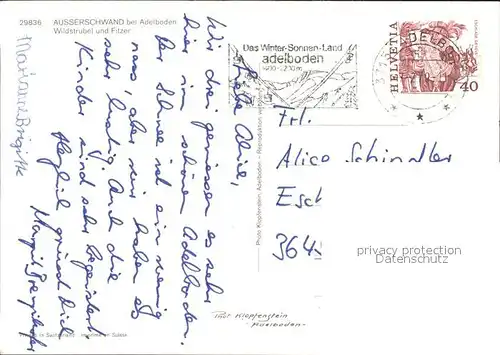 29836 AUSSERSCHWAND bei Adelboden
Wildstrubel und Fitzer
Das Winter-Sonnen-Land
adelboden
ADELBODEN
HELVETIA
40
Liebe Alice,
Wir drei geniessen es sehr
hier im schönen Adelboden.
Der Schnee ist ein wenig
nass, aber wir haben es
sehr lustig. Auch die
Kinder sind sehr begeistert
Herzlich grüsst Dich
Margrit
Mariann Brigitte
Frl.
Alice Schindler
Esch
364
privacy protection
Datenschutz
Photo Klopfenstein, Adelboden - Reproduktion
Phot Klopfenstein
Adelboden
Printed in Switzerland - Imprimé en Suisse